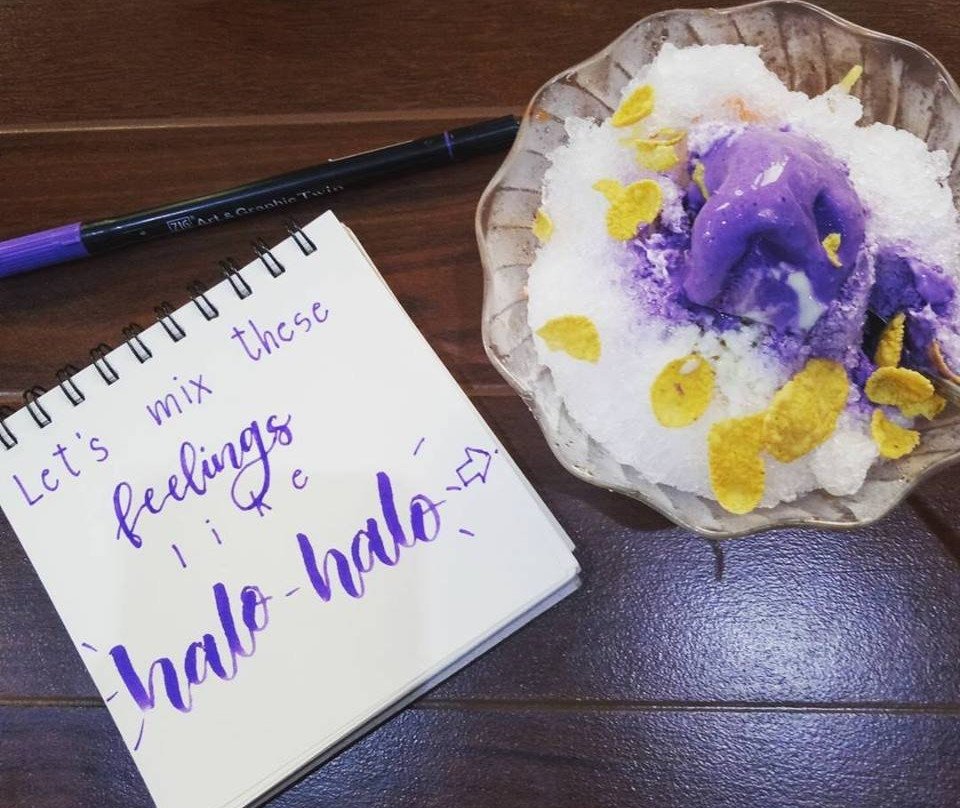 ZIG Art & Graphic Twin
Let's mix these
feelings
like
halo-halo